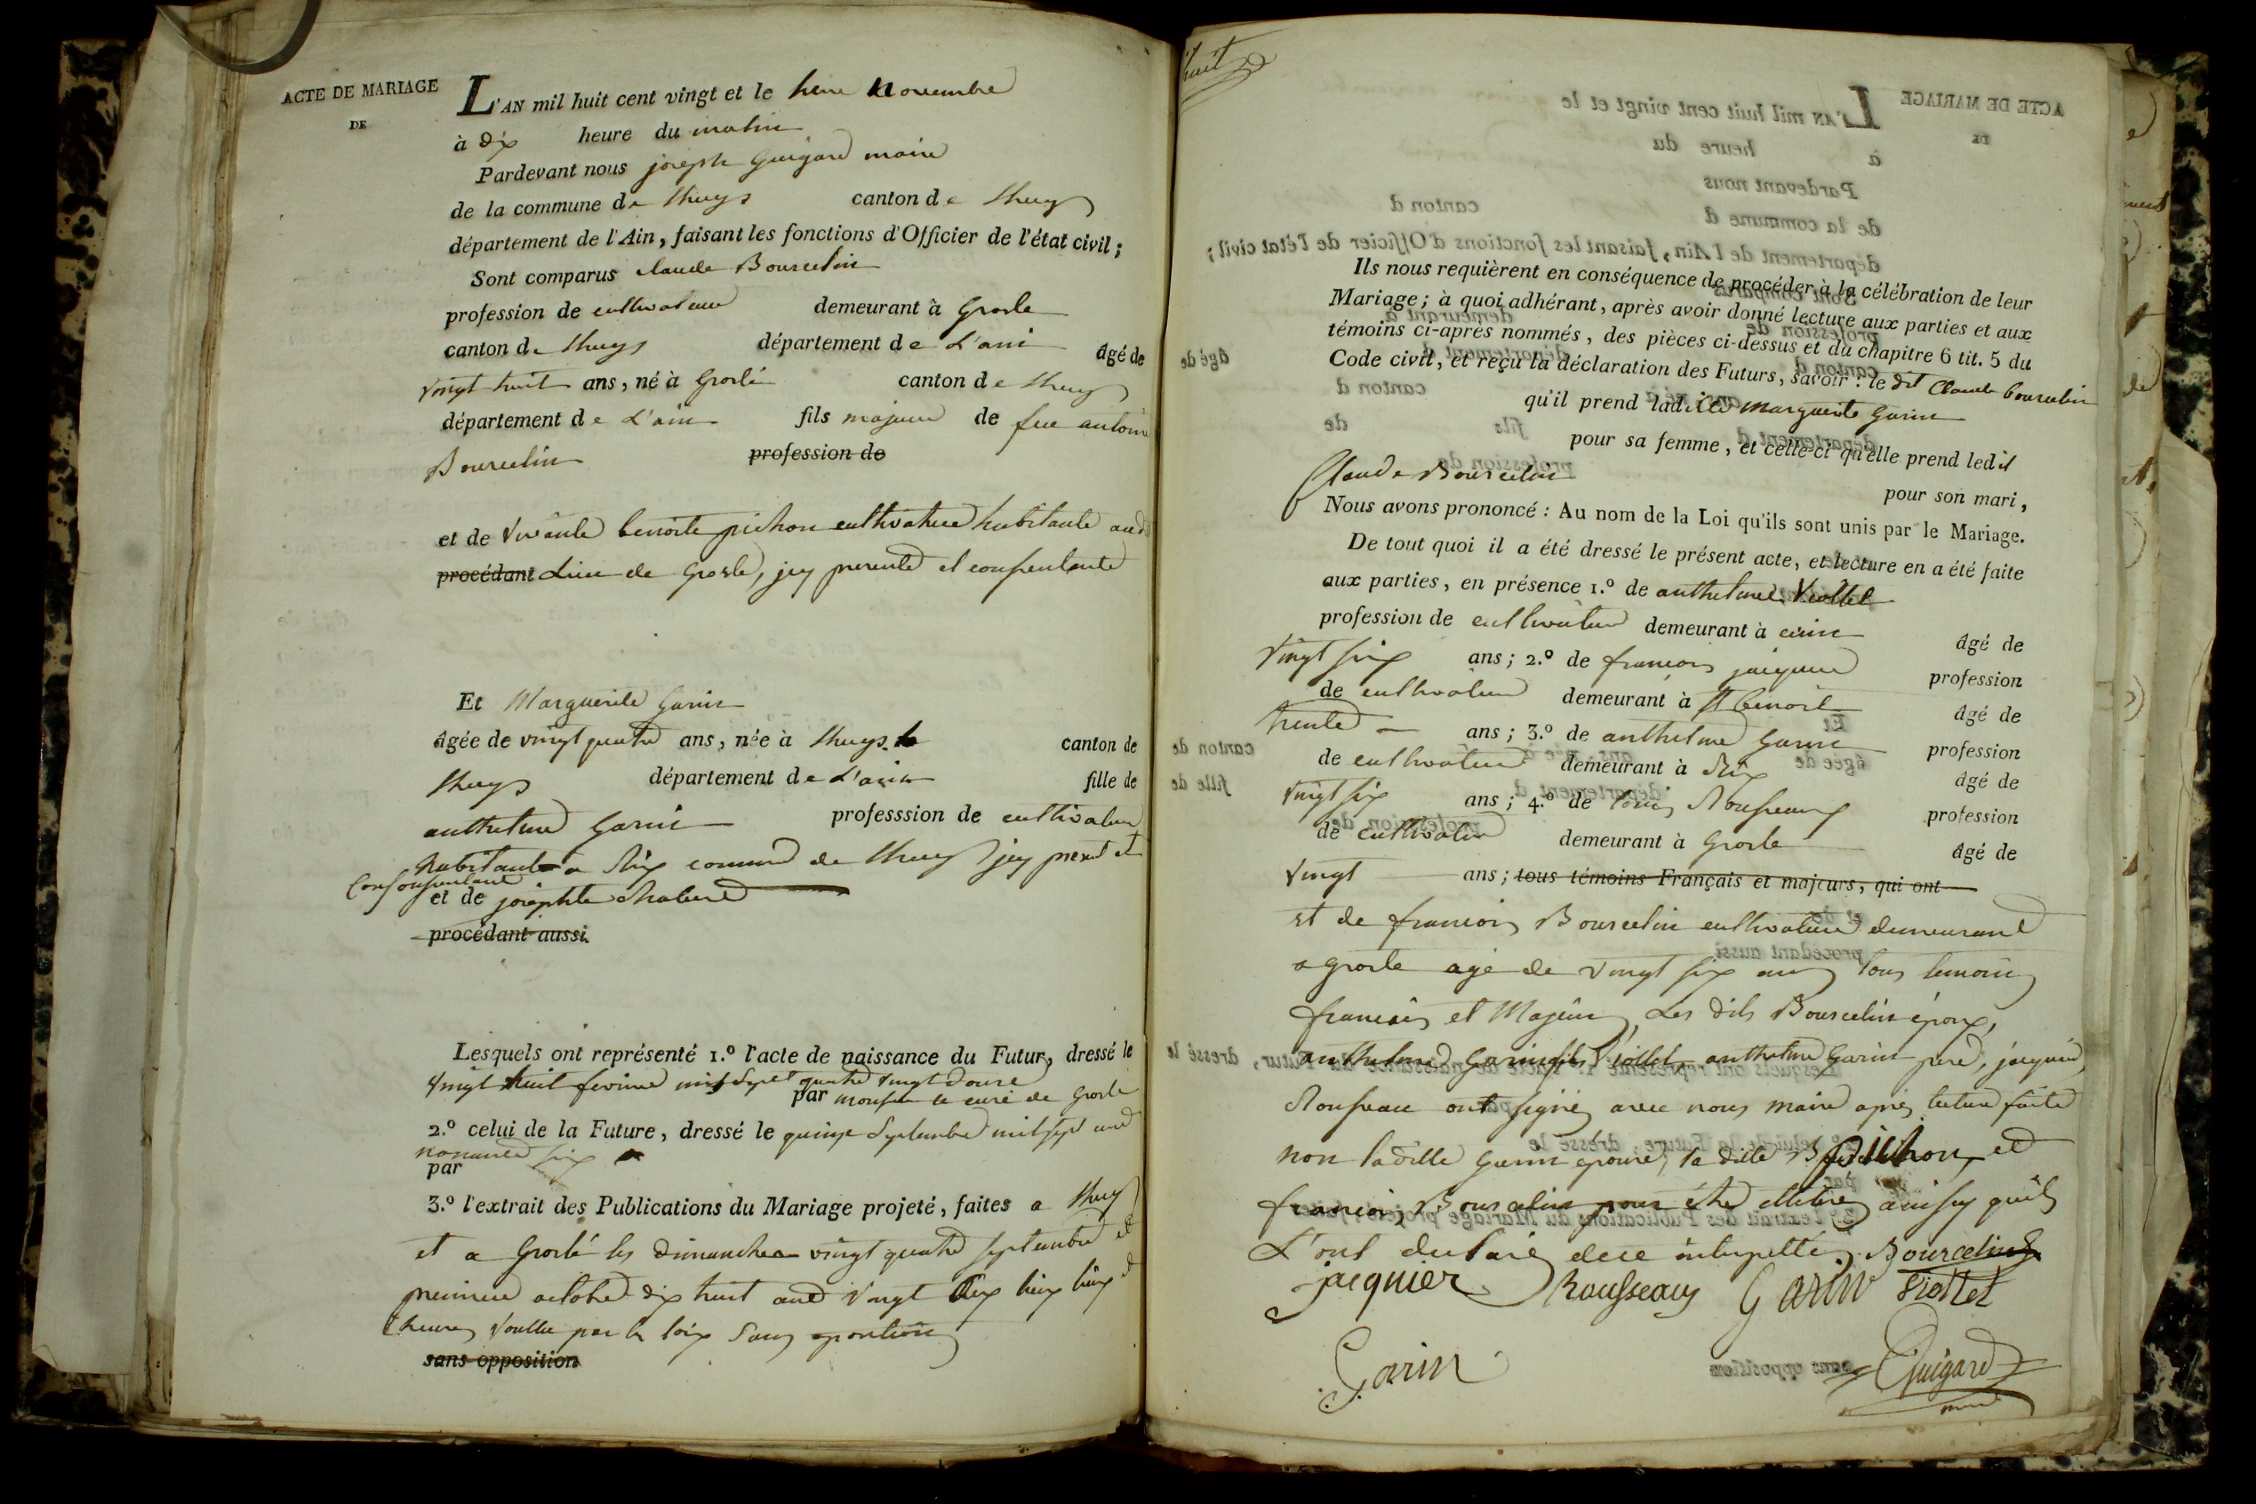 ACTE DE MARIAGE
DE
L'AN mil huit cent vingt et le novembre
à dix heure du matin
Pardevant nous joseph Guigard maire
de la commune de Lhuys canton de Lhuys
département de l'Ain, faisant les fonctions d'Officier de l'état civil;
Sont comparus Claude Bourcelin
profession de cultivateur demeurant à Grosle
canton de Lhuys département de L'ain âgé de
vingt huit ans, né à Groslé canton de Lhuys
département de L'ain fils majeur de feu antoine
Bourcelin profession de
et de vivante benoite pichon cultivatrice habitante aud
procédant Lieu de Grosle, icy presente et consentente
Et Marguerite Garin
âgée de vingt quatre ans, née à Lhuys canton de
Lhuys département de L'ain fille de
anthelme Garin professsion de cultivateur
habitant a Rix commune de Lhuys icy present et
consentant
et de josephte
procédant aussi
Lesquels ont représenté 1.º l'acte de naissance du Futur, dressé le
vingt huit mil sept quatre vingt douze
par monsieur le curé de Grosle
2.º celui de la Future, dressé le quinze Septembre mil sept cent
nonante six
par
3.º l'extrait des Publications du Mariage projeté, faites a Lhuys
et a Groslé les dimanche vingt quatre septembre et
premier octobre dix huit cent vingt aux lieux et
heures voullu par la loix Sans oposition
sans opposition
huit
Ils nous requièrent en conséquence de procéder à la célébration de leur
Mariage; à quoi adhérant, après avoir donné lecture aux parties et aux
témoins ci-après nommés, des pièces ci-dessus et du chapitre 6 tit. 5 du
Code civil, et reçu la déclaration des Futurs, savoir: le dit Claude bourcelin
qu'il prend ladite marguerite Garin
pour sa femme, et celle-ci qu'elle prend ledit
Claude Bourcelin pour son mari,
Nous avons prononcé: Au nom de la Loi qu'ils sont unis par le Mariage.
De tout quoi il a été dressé le présent acte, et lecture en a été faite
aux parties, en présence 1.º de anthelme Viollet
profession de cultivateur demeurant à âgé de
vingt six ans; 2.º de francois jacquier profession
de cultivateur demeurant à St benoit âgé de
trente ans; 3.º de anthelme Garin profession
de cultivateur demeurant à Rix âgé de
vingt six ans; 4.º de Rousseaux profession
de cultivateur demeurant à Grosle âgé de
vingt ans; tous témoins Français et majeurs, qui ont
et de francois Bourcelin cultivateur demeurant
a grosle agé de vingt six ans tous temoins
francais et Majeurs, Les dits Bourcelin époux,
anthelme Garin fils Viollet, anthelme Garin pere, jacquier,
Rousseau ont signé avec nous maire apres lecture faite
non ladite Garin epouse, la dite pichon et
francois Bourcelin pour étre ainsy qu'ils
L'ont declaré de ce interpellé. Bourcelin
jacquier Rousseaux Garin Viollet
Garin Guigard
maire